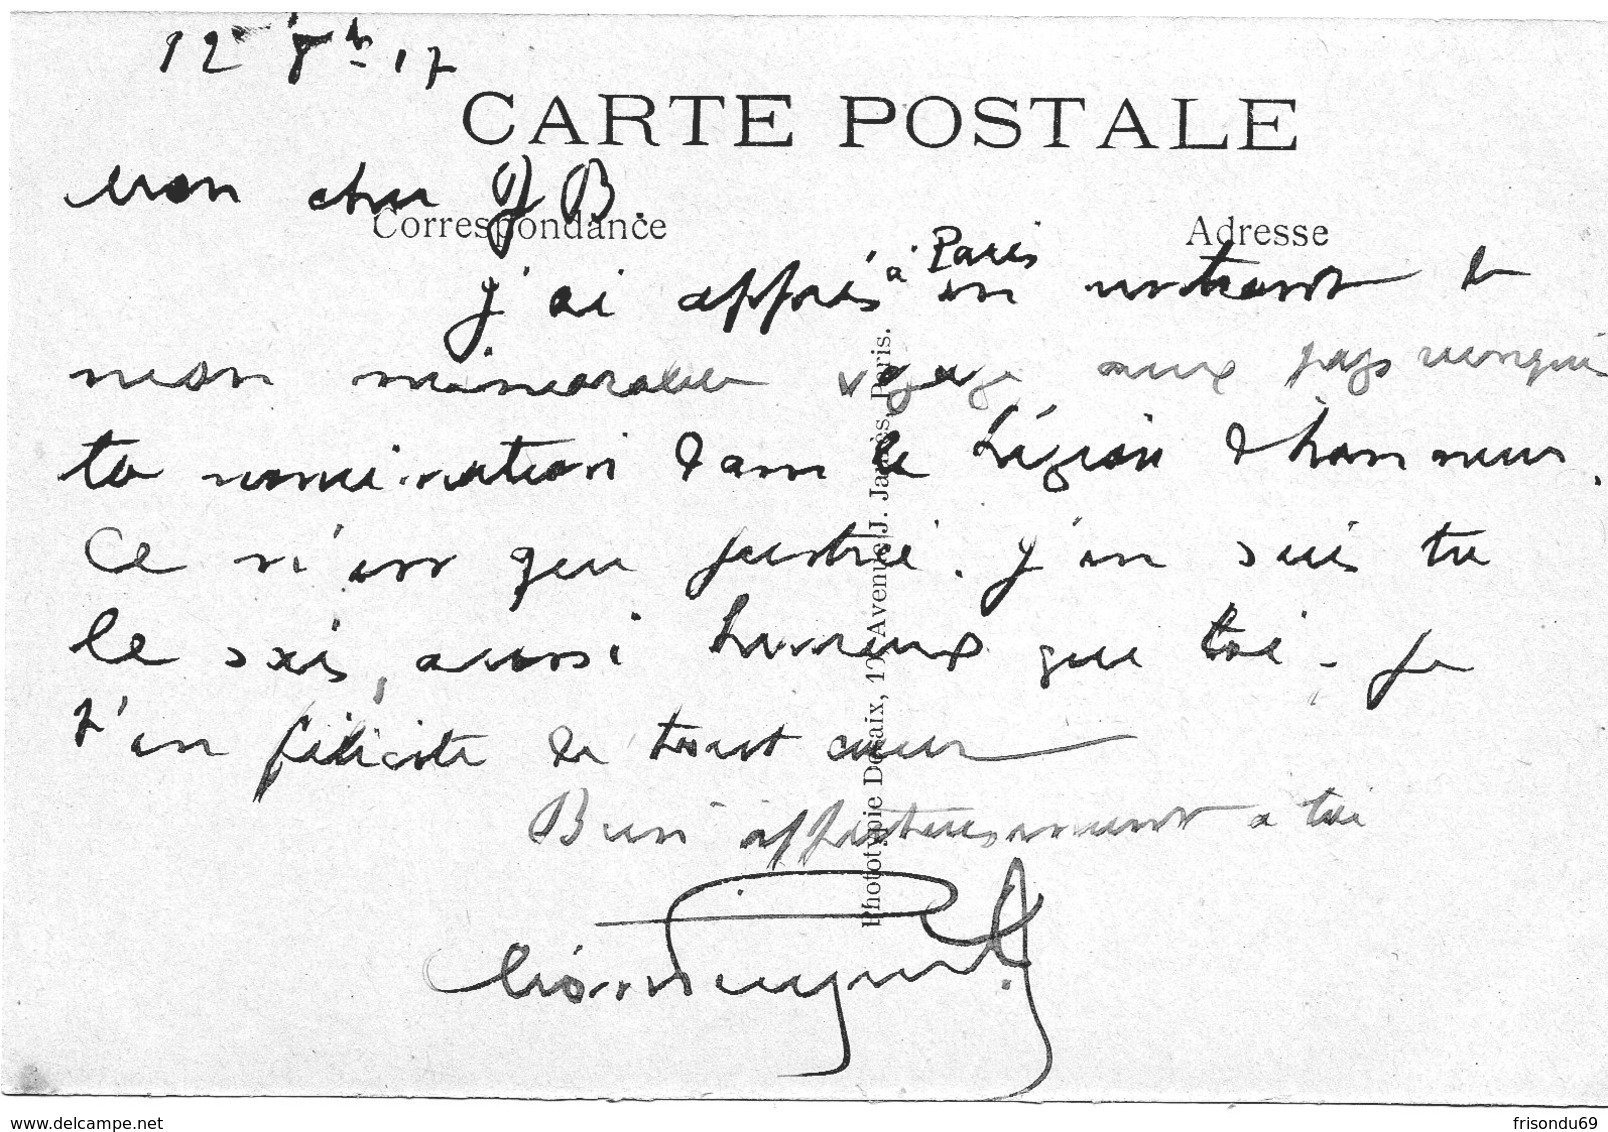 12 8bre 17
CARTE POSTALE
mon cher J B.
Correspondance
Adresse
j'ai appris à Paris en rentrant de
mon mémorable voyage aux pays
ta nomination dans la Légion d'honneur.
Ce n'est que justice. J'en suis tu
le sais, aussi heureux que toi. Je
t'en félicite de tout cœur
Bien affectueusement à toi
Phototypie Desaix, Avenue J. Jaurès, Paris.
delcampe.net
frisondu69